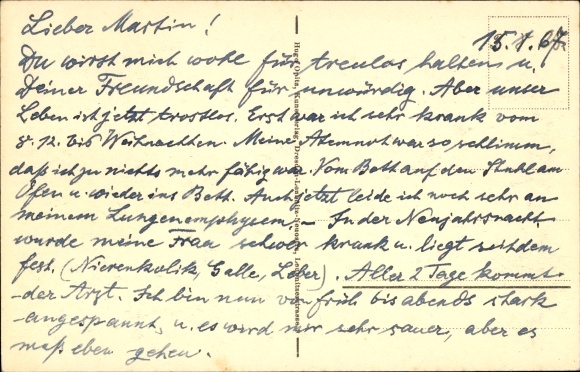 Lieber Martin!
15.1.67.
Du wirst mich wohl für treulos halten u.
Deiner Freundschaft für unwürdig. Aber unser
Leben ist jetzt trostlos. Erst war ich sehr krank vom
8.12. bis Weihnachten. Meine Atemnot war so schlimm,
daß ich zu nichts mehr fähig war. Vom Bett auf den Stuhl am
Ofen u. wieder ins Bett. Auch jetzt leide ich noch sehr an
meinem Lungenemphysem. – In der Neujahrsnacht
wurde meine Frau schwer krank u. liegt seitdem
fest. (Nierenkolik, Galle, Leber). Aller 2 Tage kommt
der Arzt. Ich bin nun von früh bis abends stark
angespannt, u. es wird mir sehr sauer, aber es
muß eben gehen.
Kunstverlag, Dresden